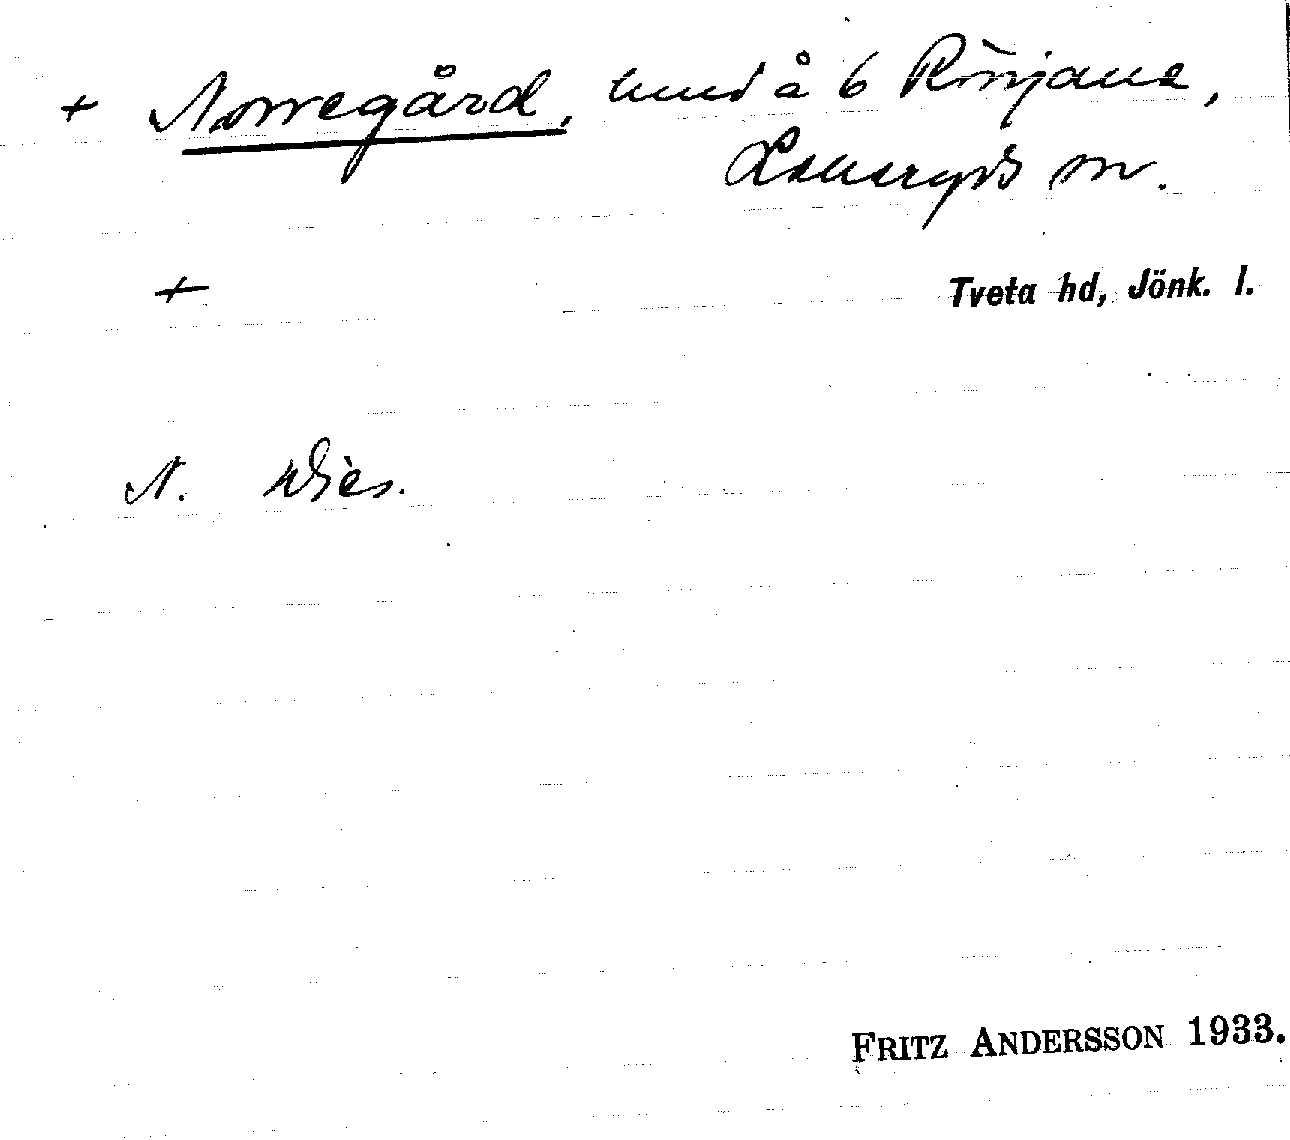 + Norregård, hmd å 6 Rörjane,
Lekeryds sn.
+
Tveta hd, Jönk. l.
N. Dies.
FRITZ ANDERSSON 1933.